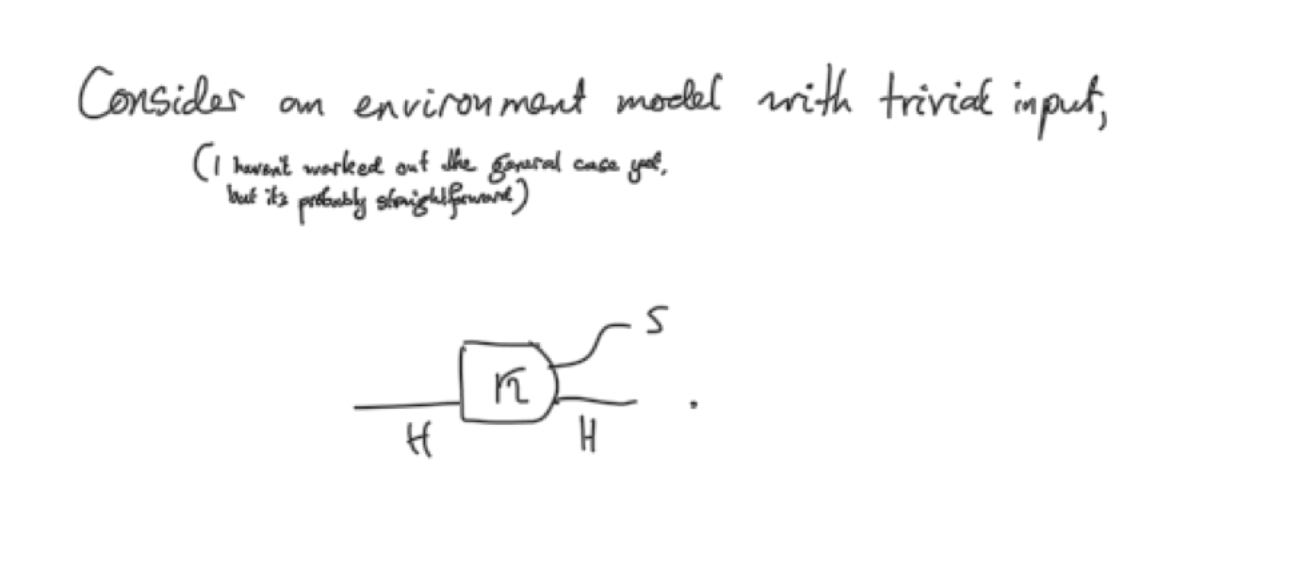 Consider an environment model with trivial input,
(I haven't worked out the general case yet,
but it's probably straightforward)
S
κ
H H .